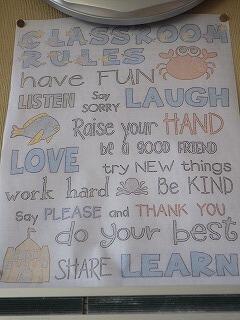 CLASSROOM
RULES
have FUN
LISTEN Say SORRY LAUGH
Raise your HAND
LOVE be a GOOD FRIEND
try NEW things
work hard Be KIND
Say PLEASE and THANK YOU
do your best
SHARE LEARN